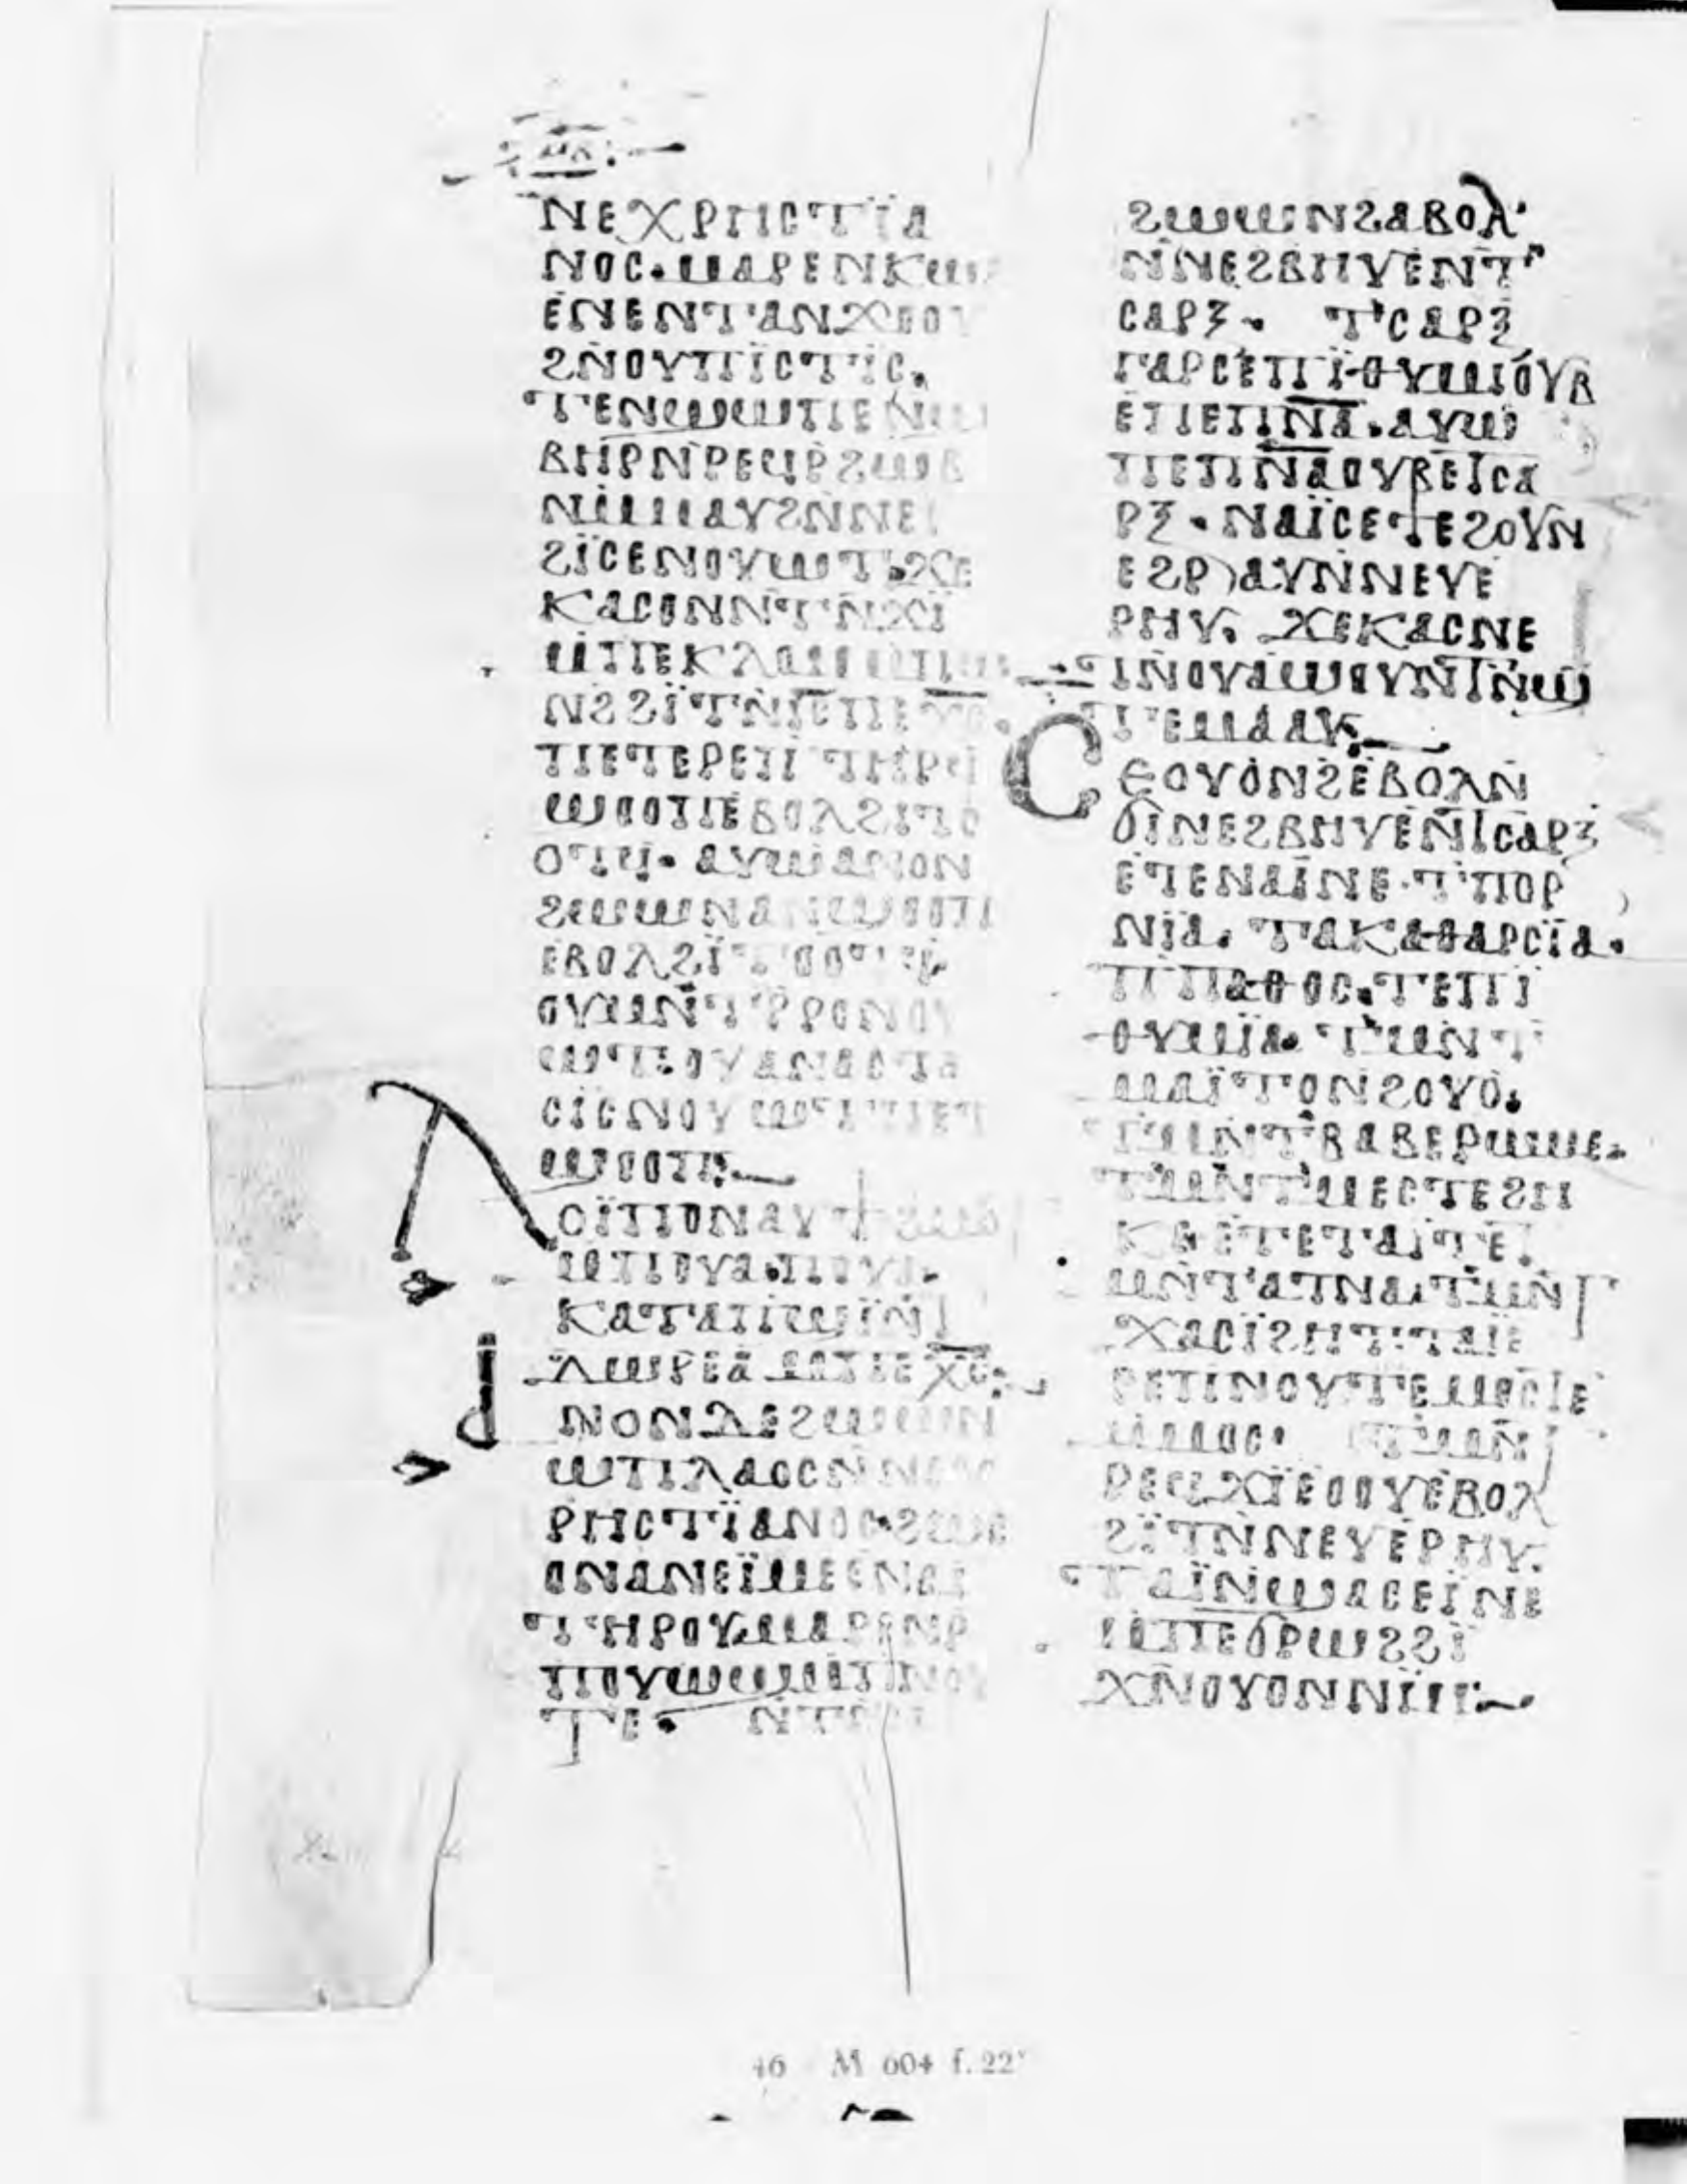 ⲙⲃ
ⲛⲉⲭⲣⲏⲥⲧⲓ̈ⲁ
ⲛⲟⲥ· ⲙⲁⲣⲉⲛⲕⲱ
ⲉⲛⲉⲛⲧⲁⲛϫⲟⲟⲩ
ϩⲛ̄ⲟⲩⲡⲓ̈ⲥⲧⲓ̈ⲥ.
ⲧⲉⲛϣⲱⲡⲉ ⲛϣ
ⲃⲏⲣⲛ̄ⲣⲉϥⲣ̄ϩⲱⲃ
ⲛⲙ̄ⲙⲁⲩϩⲛ̄ⲛⲉⲓ
ϩⲓ̈ⲥⲉⲛⲟⲩⲱⲧ· ϫⲉ
ⲕⲁⲥⲟⲛⲛⲧⲛ̄ϫⲓ̈
ⲙ̄ⲡⲉⲕⲗⲟⲙ
ⲛϩϩⲓ̈ⲧⲛ̄ⲓ̅ⲥ̅ⲡⲉⲭ̅ⲥ̅·
ⲡⲉⲧⲉⲣⲉⲡⲧⲏⲣϥ
ϣⲟⲟⲡⲉⲃⲟⲗϩⲓⲧⲟ
ⲟⲧϥ· ⲁⲩⲱⲁⲛⲟⲛ
ϩⲱⲱⲛⲁⲛϣⲟⲟⲡ
ⲉⲃⲟⲗϩⲓ̈ⲧⲟⲟⲧϥ·
ⲟⲩⲙⲛ̄ⲧⲣ̄ⲣⲟⲛⲟⲩ
ⲱⲧⲉⲟⲩⲁⲛⲁⲥⲧⲁ
ⲥⲓ̈ⲥⲛⲟⲩⲱⲧⲡⲉⲧ
ϣⲟⲟⲡ·
ⲗⲟⲓ̈ⲡⲟⲛⲁⲩϯ
ⲙ̄ⲡⲟⲩⲁ·ⲡⲟⲩⲁ·
ⲕⲁⲧⲁⲡϣⲓ̈ⲛ̄ⲧ
ⲇⲱⲣⲉⲁ ⲙ̄ⲡⲉⲭ̅ⲥ̅·
ⲁⲛⲟⲛⲇⲉϩⲱⲱⲛ
ⲱⲡⲗⲁⲟⲥⲛ̄ⲛⲉⲭ
ⲣⲏⲥⲧⲓ̈ⲁⲛⲟⲥ·ϩⲱⲥ
ⲟⲛⲁⲛⲉⲓ̈ⲙⲉⲉⲛⲁⲓ
ⲧⲏⲣⲟⲩ·ⲙⲁⲣⲉⲛⲣ
ⲡⲟⲩⲱϣⲙ̄ⲡⲛⲟⲩ
ⲧⲉ·
ϩⲱⲱⲛϩⲁⲃⲟⲗ·
ⲛ̄ⲛⲉϩⲃⲏⲩⲉⲛⲧ
ⲥⲁⲣⲝ· ⲧⲥⲁⲣⲝ
ⲅⲁⲣⲥⲉⲡⲓ̈ⲑⲩⲙⲓⲟⲩⲃ
ⲉⲡⲉⲡ̅ⲛ̅ⲁ̅·ⲁⲩⲱ
ⲡⲉⲡ̅ⲛ̅ⲁ̅ⲟⲩⲃⲉⲧⲥⲁ
ⲣⲝ· ⲛⲁⲓ̈ⲥⲉϯⲉϩⲟⲩⲛ
ⲉϩⲣⲁⲩⲛ̄ⲛⲉⲩⲉ
ⲣⲏⲩ· ϫⲉⲕⲁⲥⲛⲉ
ⲧⲛ̄ⲟⲩⲁϣⲟⲩⲛ̄ⲧⲛ̄ϣ
ⲧⲉⲙⲁⲁⲩ·
ⲥⲉⲟⲩⲟⲛϩⲉⲃⲟⲗⲛ̄
ϭⲓⲛⲉϩⲃⲏⲩⲉⲛ̄ⲧⲥⲁⲣⲝ
ⲉⲧⲉⲛⲁⲓ̈ⲛⲉ·ⲧⲡⲟⲣ
ⲛⲓ̈ⲁ· ⲧⲁⲕⲁⲑⲁⲣⲥⲓ̈ⲁ·
ⲡⲡⲁⲑⲟⲥ·ⲧⲉⲡⲓ̈
ⲑⲩⲙⲓ̈ⲁ· ⲧⲙⲛ̄ⲧ
ⲙⲁⲓ̈ⲧⲟⲛϩⲟⲩⲟ·
ⲧⲙⲛ̄ⲧⲃⲁⲃⲉⲣⲱⲙⲉ·
ⲧⲙⲛ̄ⲧⲙⲉⲥⲧⲉϩⲏ
ⲕⲉⲉⲧⲉⲧⲁⲓ̈ⲧⲉ
ⲙⲛ̄ⲧⲁⲧⲛⲁ·ⲧⲙⲛ̄ⲧ
ϫⲁⲥⲓ̈ϩⲏⲧ·ⲧⲁⲓ̈ⲉ
ⲣⲉⲡⲛⲟⲩⲧⲉⲙⲟⲥⲧⲉ
ⲙ̄ⲙⲟⲥ· ⲧⲙⲛ̄ⲧ
ⲣⲉϥϫⲓ̈ⲉⲟⲟⲩⲉⲃⲟⲗ
ϩⲓ̈ⲧⲛ̄ⲛⲉⲩⲉⲣⲏⲩ·
ⲧⲁⲓ̈ⲛ̄ϣⲁⲥⲉⲓ̈ⲛⲉ
ⲙ̄ⲡⲉϭⲣⲱϩϩⲓ̈
ϫⲛ̄ⲟⲩⲟⲛⲛⲓ̈ⲙ·
46 M 604 f. 22ᵛ